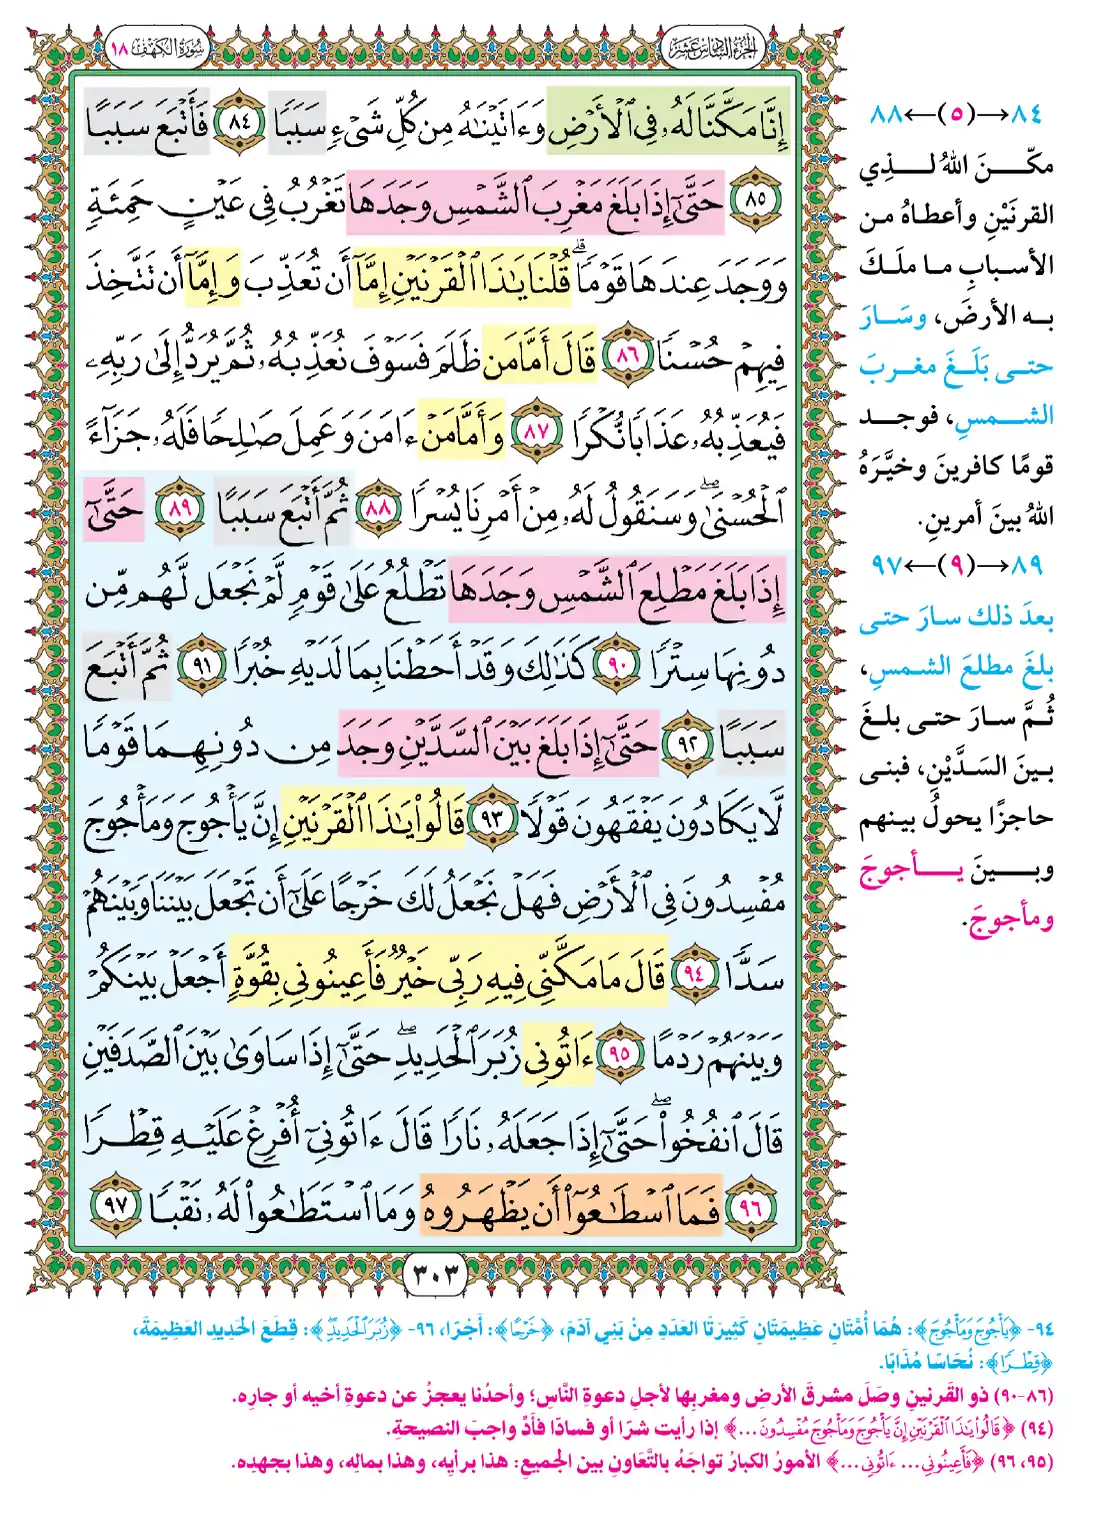 الجزء السادس عشر
سورة الكهف ١٨
إِنَّا مَكَّنَّا لَهُۥ فِي ٱلۡأَرۡضِ وَءَاتَيۡنَٰهُ مِن كُلِّ شَيۡءٖ سَبَبٗا ٨٤ فَأَتۡبَعَ سَبَبًا
٨٥ حَتَّىٰٓ إِذَا بَلَغَ مَغۡرِبَ ٱلشَّمۡسِ وَجَدَهَا تَغۡرُبُ فِي عَيۡنٍ حَمِئَةٖ
وَوَجَدَ عِندَهَا قَوۡمٗاۖ قُلۡنَا يَٰذَا ٱلۡقَرۡنَيۡنِ إِمَّآ أَن تُعَذِّبَ وَإِمَّآ أَن تَتَّخِذَ
فِيهِمۡ حُسۡنٗا ٨٦ قَالَ أَمَّا مَن ظَلَمَ فَسَوۡفَ نُعَذِّبُهُۥ ثُمَّ يُرَدُّ إِلَىٰ رَبِّهِۦ
فَيُعَذِّبُهُۥ عَذَابٗا نُّكۡرٗا ٨٧ وَأَمَّا مَنۡ ءَامَنَ وَعَمِلَ صَٰلِحٗا فَلَهُۥ جَزَآءً
ٱلۡحُسۡنَىٰۖ وَسَنَقُولُ لَهُۥ مِنۡ أَمۡرِنَا يُسۡرٗا ٨٨ ثُمَّ أَتۡبَعَ سَبَبًا ٨٩ حَتَّىٰٓ
إِذَا بَلَغَ مَطۡلِعَ ٱلشَّمۡسِ وَجَدَهَا تَطۡلُعُ عَلَىٰ قَوۡمٖ لَّمۡ نَجۡعَل لَّهُم مِّن
دُونِهَا سِتۡرٗا ٩٠ كَذَٰلِكَ وَقَدۡ أَحَطۡنَا بِمَا لَدَيۡهِ خُبۡرٗا ٩١ ثُمَّ أَتۡبَعَ
سَبَبًا ٩٢ حَتَّىٰٓ إِذَا بَلَغَ بَيۡنَ ٱلسَّدَّيۡنِ وَجَدَ مِن دُونِهِمَا قَوۡمٗا
لَّا يَكَادُونَ يَفۡقَهُونَ قَوۡلٗا ٩٣ قَالُواْ يَٰذَا ٱلۡقَرۡنَيۡنِ إِنَّ يَأۡجُوجَ وَمَأۡجُوجَ
مُفۡسِدُونَ فِي ٱلۡأَرۡضِ فَهَلۡ نَجۡعَلُ لَكَ خَرۡجًا عَلَىٰٓ أَن تَجۡعَلَ بَيۡنَنَا وَبَيۡنَهُمۡ
سَدّٗا ٩٤ قَالَ مَا مَكَّنِّي فِيهِ رَبِّي خَيۡرٞ فَأَعِينُونِي بِقُوَّةٍ أَجۡعَلۡ بَيۡنَكُمۡ
وَبَيۡنَهُمۡ رَدۡمًا ٩٥ ءَاتُونِي زُبَرَ ٱلۡحَدِيدِۖ حَتَّىٰٓ إِذَا سَاوَىٰ بَيۡنَ ٱلصَّدَفَيۡنِ
قَالَ ٱنفُخُواْۖ حَتَّىٰٓ إِذَا جَعَلَهُۥ نَارٗا قَالَ ءَاتُونِيٓ أُفۡرِغۡ عَلَيۡهِ قِطۡرٗا
٩٦ فَمَا ٱسۡطَٰعُوٓاْ أَن يَظۡهَرُوهُ وَمَا ٱسۡتَطَٰعُواْ لَهُۥ نَقۡبٗا ٩٧
٣٠٣
٨٤→(٥)←٨٨
مكّنَ اللهُ لذِي
القرنَيْنِ وأعطاهُ من
الأسبابِ ما ملَكَ
به الأرضَ، وسَارَ
حتى بَلَغَ مغربَ
الشمسِ، فوجد
قومًا كافرينَ وخيَّرَهُ
اللهُ بينَ أمرينِ.
٨٩→(٩)←٩٧
بعدَ ذلك سارَ حتى
بلغَ مطلعَ الشمسِ،
ثُمَّ سارَ حتى بلغَ
بينَ السَدَّيْنِ، فبنى
حاجزًا يحولُ بينهم
وبينَ يأجوجَ
ومأجوجَ.
٩٤- ﴿يَأْجُوجَ وَمَأْجُوجَ﴾: هُمَا أُمَّتَانِ عَظِيمَتَانِ كَثِيرَتَا العَدَدِ مِنْ بَنِي آدَمَ، ﴿خَرْجًا﴾: أَجْرًا، ٩٦- ﴿زُبَرَ ٱلْحَدِيدِ﴾: قِطَعَ الحَدِيدِ العَظِيمَةَ،
﴿قِطْرًا﴾: نُحَاسًا مُذَابًا.
(٨٦-٩٠) ذو القَرنينِ وصَلَ مشرقَ الأرضِ ومغربِها لأجلِ دعوةِ النَّاسِ؛ وأحدُنا يعجزُ عن دعوةِ أخيه أو جارِه.
(٩٤) ﴿قَالُوا۟ يَٰذَا ٱلْقَرْنَيْنِ إِنَّ يَأْجُوجَ وَمَأْجُوجَ مُفْسِدُونَ...﴾ إذا رأيت شرًا أو فسادًا فأدِّ واجبَ النصيحةِ.
(٩٥، ٩٦) ﴿فَأَعِينُونِي... ءَاتُونِي...﴾ الأمورُ الكبارُ تواجَهُ بالتَّعَاونِ بين الجميعِ: هذا برأيِه، وهذا بمالِه، وهذا بجهدِه.